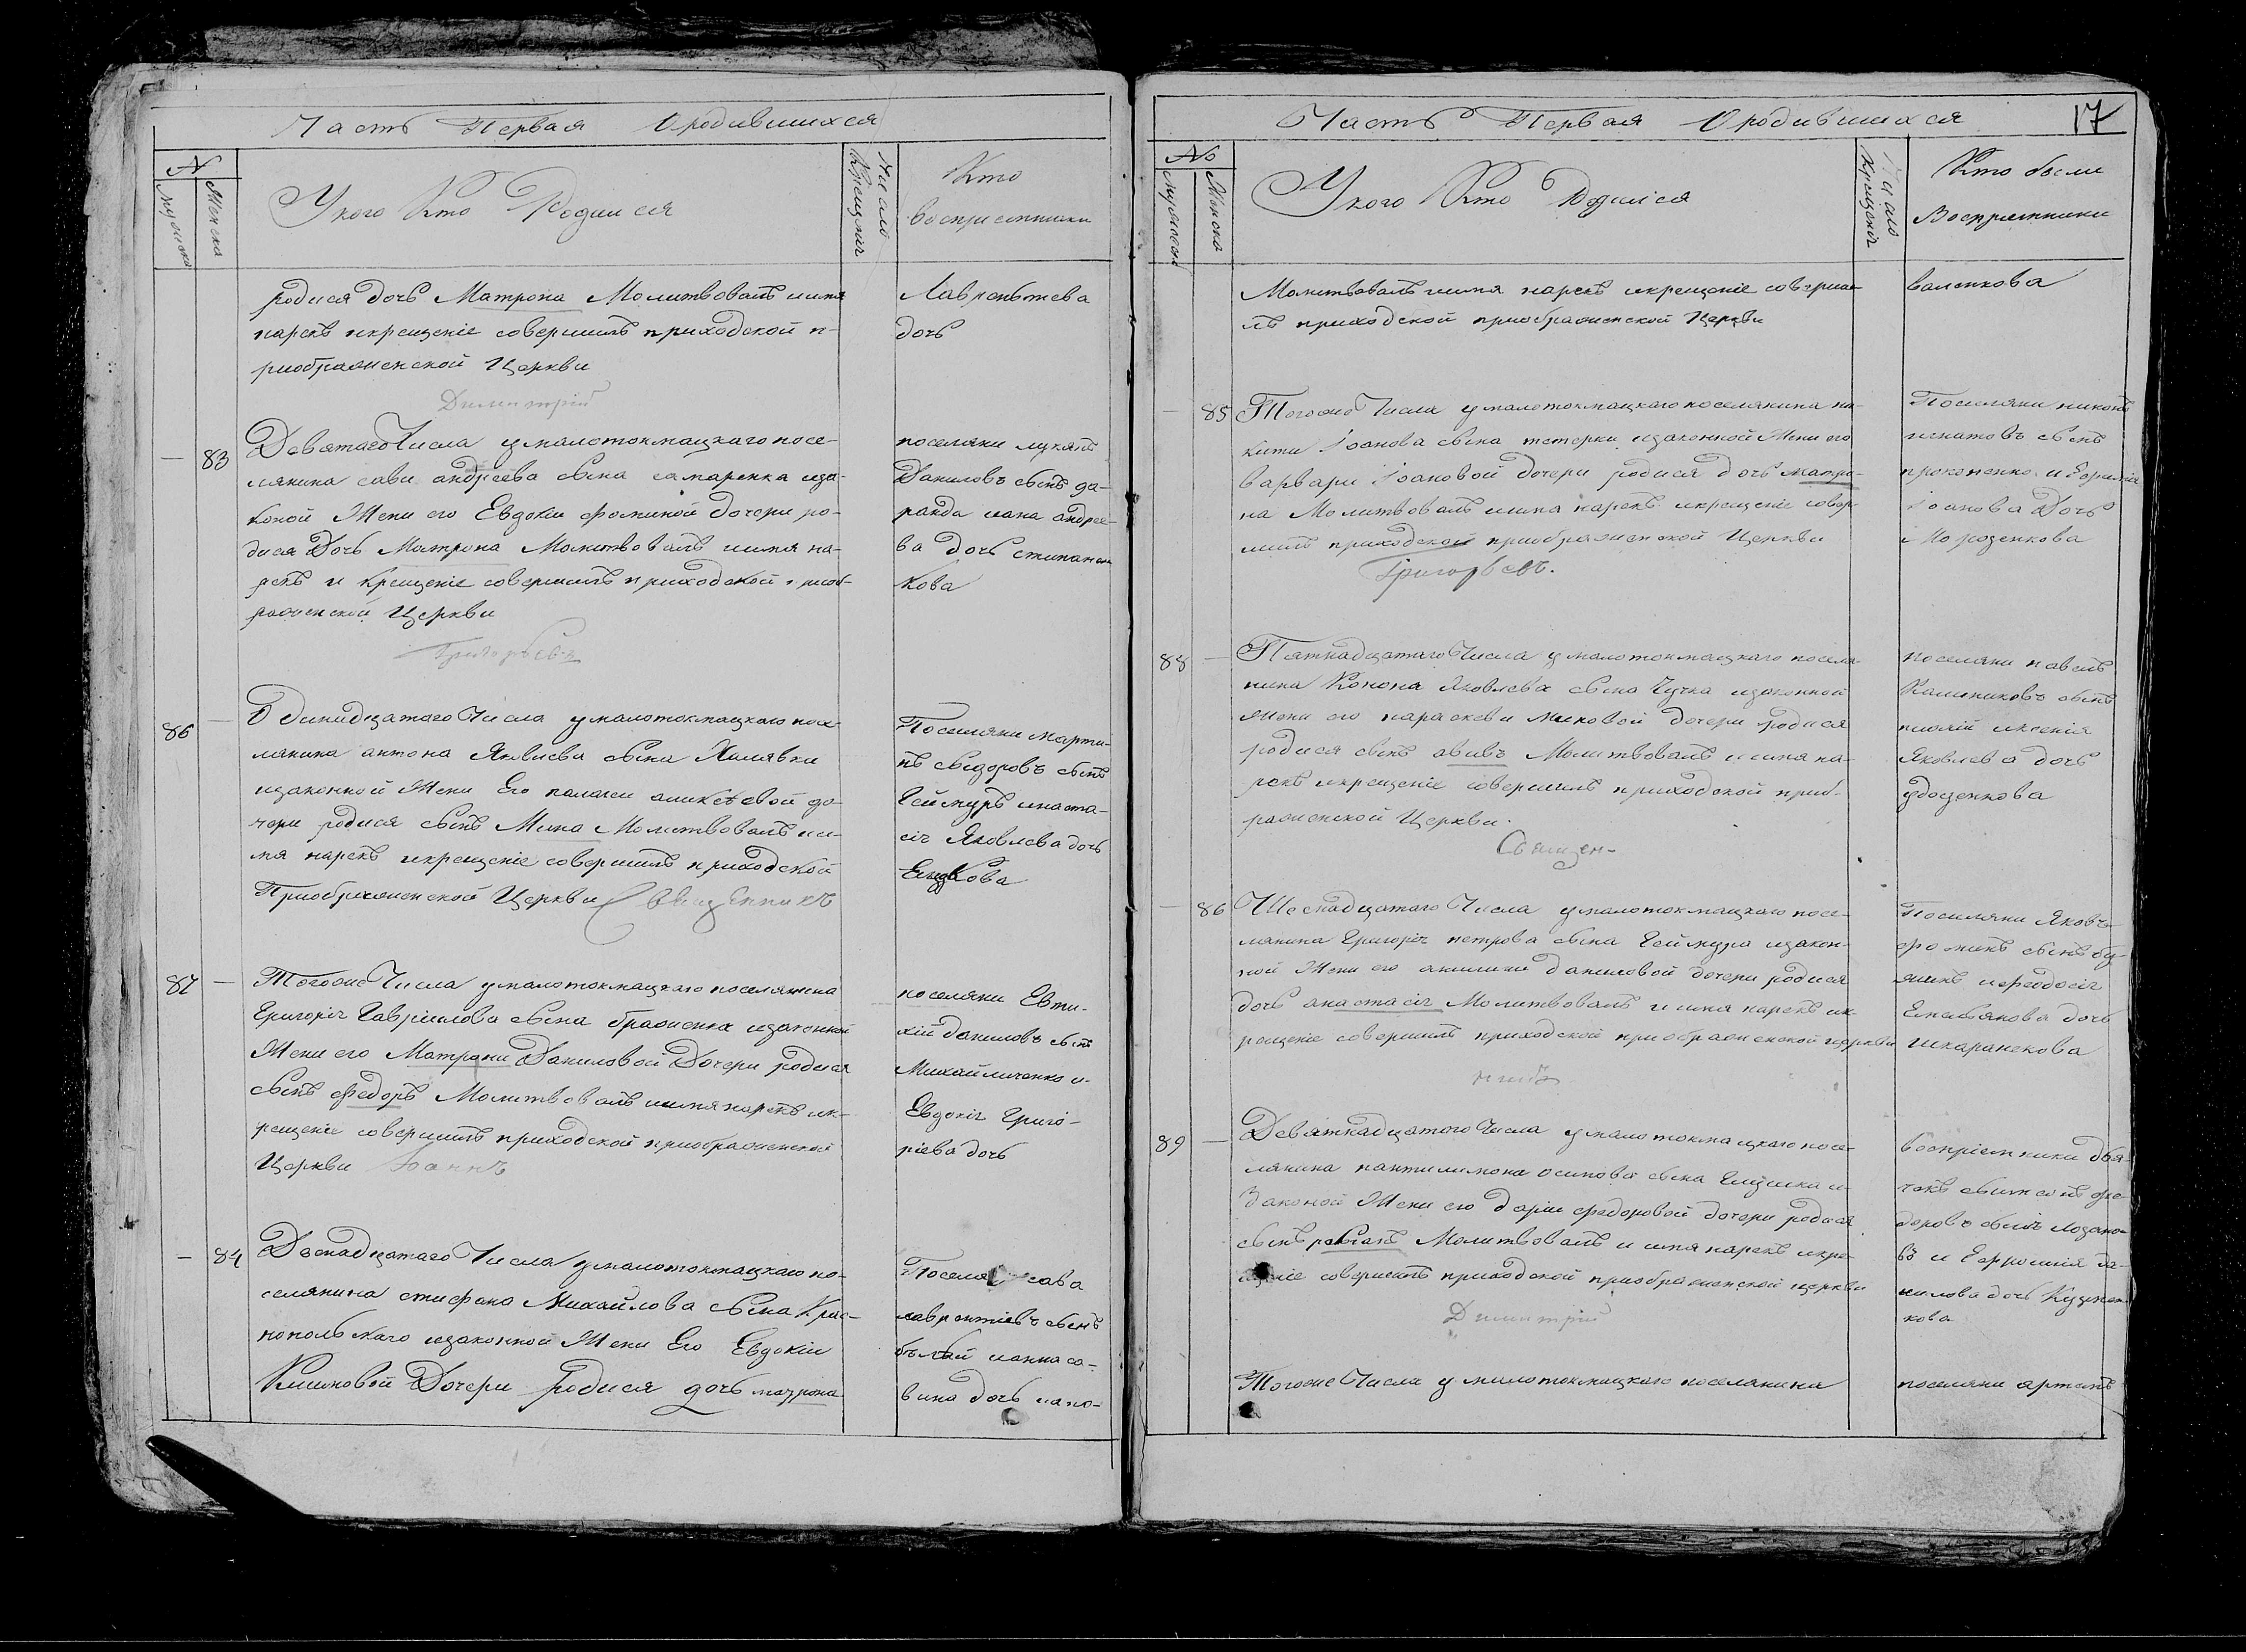 Часть Первая О родившихся
№
Мужеска
Женска
У кого Кто Родился
Число Крещения
Кто
восприемники
родися дочь Матрона Молитвовалъ и имя
нарекъ и крещеніе совершилъ приходской п-
риображенской Церкви
Димитрій
Лавреньтева
дочь
83 Девятаго Числа у малотокмацкаго посе-
лянина сави андреева сына самаренка иза-
коной Жени его Евдокіи фоминой дочери ро-
дися Дочь Матрона Молитвовалъ и имя на-
рекъ и Крещеніе совершилъ приходской приоб-
раженской Церкви
Григорьевъ
поселяни лукаянъ
Даниловъ сынъ га-
ранда и анна андрее-
ва дочь стипанен
кова
86 Одинадцатаго Числа у малотокмацкаго посе-
лянина антона Яковлева сына Халявки
изаконной Жени Его палагеи аликсѣевой до-
чери родися сынъ Мина Молитвовалъ и и-
мя нарекъ и крещеніе совершилъ приходской
Приображенской Церкви Священникъ
Поселяни марти-
нъ сыдоровъ сынъ
Геймуръ и наста-
сія Яковлева дочь
87 Тогоже Числа у малотокмацкаго поселянина
Григорія Гавриилова сына браженка изаконной
Жени его Матрони Даниловой Дочери родися
сынъ федоръ Молитвовалъ и имя нарекъ и к-
рещеніе совершилъ приходской приображенской
Церкви Іоаннъ
поселяни Евти-
хій даниловъ сынъ
Михайличенко и
Евдокія Григо-
ріева дочь
84 Двенадцатаго Числа у малотокмацкаго по-
селянина стифана Михайлова сына Крас-
нопольскаго изаконной Жени Его Евдокіи
Климовой Дочери родися дочь матрона
Поселя сава
лаврентіевъ сынъ
бѣлый и анна са-
вина дочь
Часть Первая О родившихся
17
№
Мужеска
Женска
У кого Кто Родился
Число Крещенія
Кто были
Восприемники
Молитвовалъ и имя нарекъ и крещеніе соверши-
лъ приходской приображенской Церкви
валенкова
85 Тогоже Числа у малотокмацкаго поселянина ни-
кити Іоанова сына тетерки изаконной Жени его
варвари Іоановой дочери родися дочь матро-
на Молитвовалъ и имя нарекъ и крещеніе совер
шилъ приходской приображенской Церкви
Григорьевъ.
Поселяни никонъ
игнатовъ сынъ
прокопенко и Ефимія
Іоанова Дочь
Морозенкова
88 Пятнадцатаго Числа у малотокмацкаго поселя-
нина Конона Яковлева сына Чучка изаконной
Жени его параскеви миковой дочери родися
родися сынъ авивъ Молитвовалъ и имя на-
рекъ и крещеніе совершилъ приходской приоб-
раженской Церкви.
Священ-
поселяни павелъ
Калиниковъ сынъ
и ксенія
Яковлева дочь
удоденкова
86 Шеснадцатаго Числа у малотокмацкаго посе-
лянина Григорія петрова сына Геймура изакон-
ной Жени его акилини даниловой дочери родися
дочь анастасія Молитвовалъ и имя нарекъ и к-
рещеніе совершилъ приходской приображенской церкви
никъ
Поселяни Яковъ
фоминъ сынъ бу-
якъ и феодосія
Емельянова дочь
шкаранскова
89 Девятнадцатаго Числа у малотокмацкаго посе-
лянина пантилимона осипова сына Елизенка и-
законой Жени его даріи федоровой дочери родися
сынъ Молитвовалъ и имя нарекъ и кре-
щеніе совершилъ приходской приображенской церкви
Димитрій
воспріемники дья-
чокъ симеонъ фео-
доровъ сынъ лозано-
въ и Евросинія да-
нилова дочь Кузмен
кова
Тогоже Числа у малотокмацкаго поселянина
поселяни артемъ